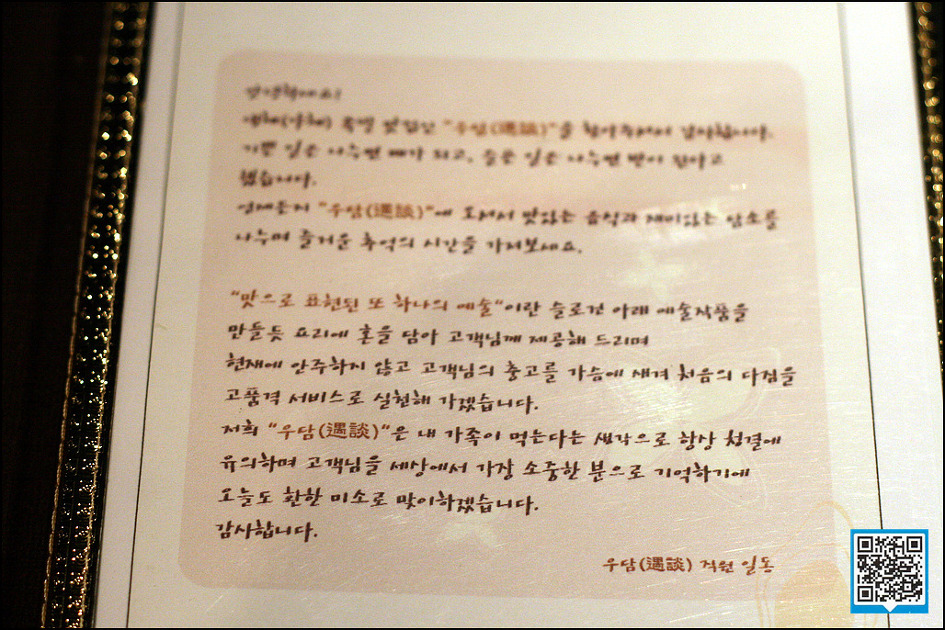 안녕하세요!
"우담(遇談)"을 찾아주셔서 감사합니다.
기쁜 일은 나누면 배가 되고, 슬픈 일은 나누면 반이 된다고
했습니다.
언제든지 "우담(遇談)"에 오셔서 맛있는 음식과 재미있는 담소를
나누며 즐거운 추억의 시간을 가져보세요.
"맛으로 표현된 또 하나의 예술"이란 슬로건 아래 예술작품을
만들듯 요리에 혼을 담아 고객님께 제공해 드리며
현재에 안주하지 않고 고객님의 충고를 가슴에 새겨 처음의 다짐을
고품격 서비스로 실천해 가겠습니다.
저희 "우담(遇談)"은 내 가족이 먹는다는 생각으로 항상 청결에
유의하며 고객님을 세상에서 가장 소중한 분으로 기억하기에
오늘도 환한 미소로 맞이하겠습니다.
감사합니다.
우담(遇談) 직원 일동